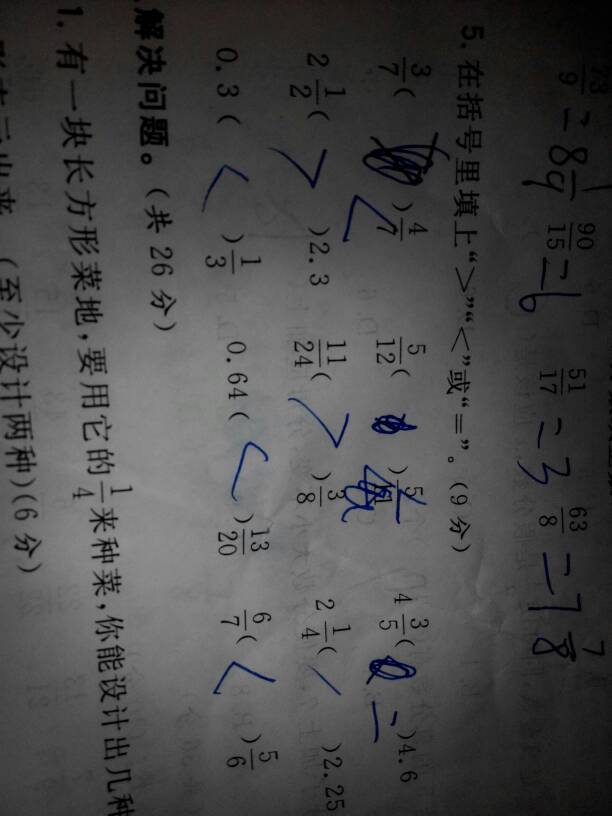 73/9 = 8 1/9 90/15 = 6 51/17 = 3 63/8 = 7 7/8
5. 在括号里填上“>”“<”或“=”。(9分)
3/7( < )4/7 5/12( < )5/11 4 3/5( = )4.6
2 1/2( > )2.3 11/24( > )3/8 2 1/4( )2.25
0.3( < )1/3 0.64( < )13/20 6/7( < )5/6
解决问题。(共26分)
1. 有一块长方形菜地,要用它的1/4来种菜,你能设计出几种
出来。(至少设计两种)(6分)